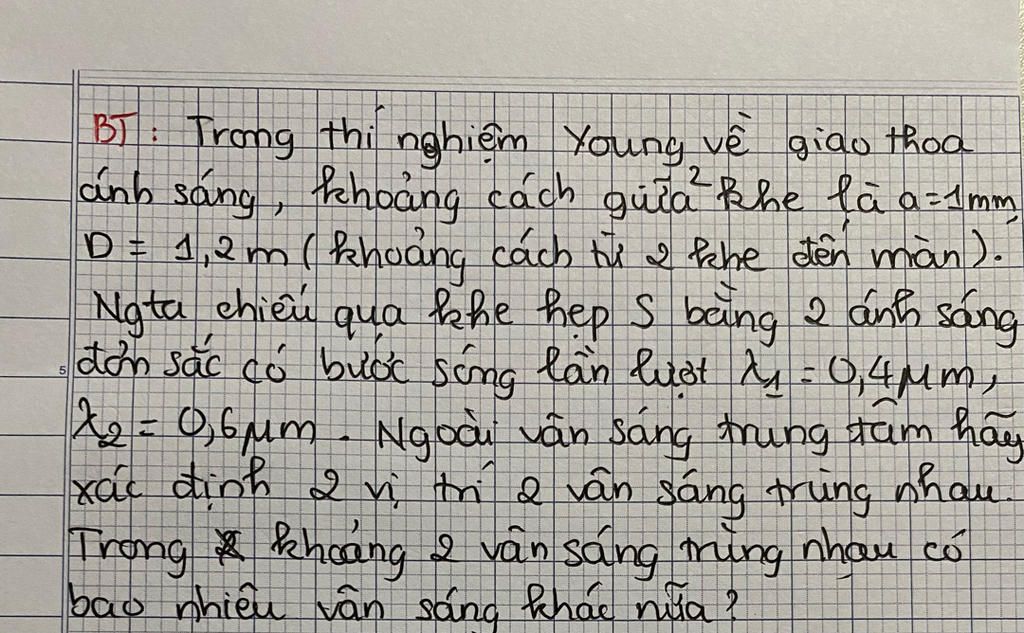 BT: Trong thí nghiệm Young về giao thoa
ánh sáng, khoảng cách giữa 2 khe là a=1mm,
D = 1,2m (khoảng cách từ 2 khe đến màn).
Ngta chiếu qua khe hẹp S bằng 2 ánh sáng
5 đơn sắc có bước sóng lần lượt λ1 = 0,4μm,
λ2 = 0,6μm. Ngoài vân sáng trung tâm hãy
xác định 2 vị trí 2 vân sáng trùng nhau.
Trong khoảng 2 vân sáng trùng nhau có
bao nhiêu vân sáng khác nữa?